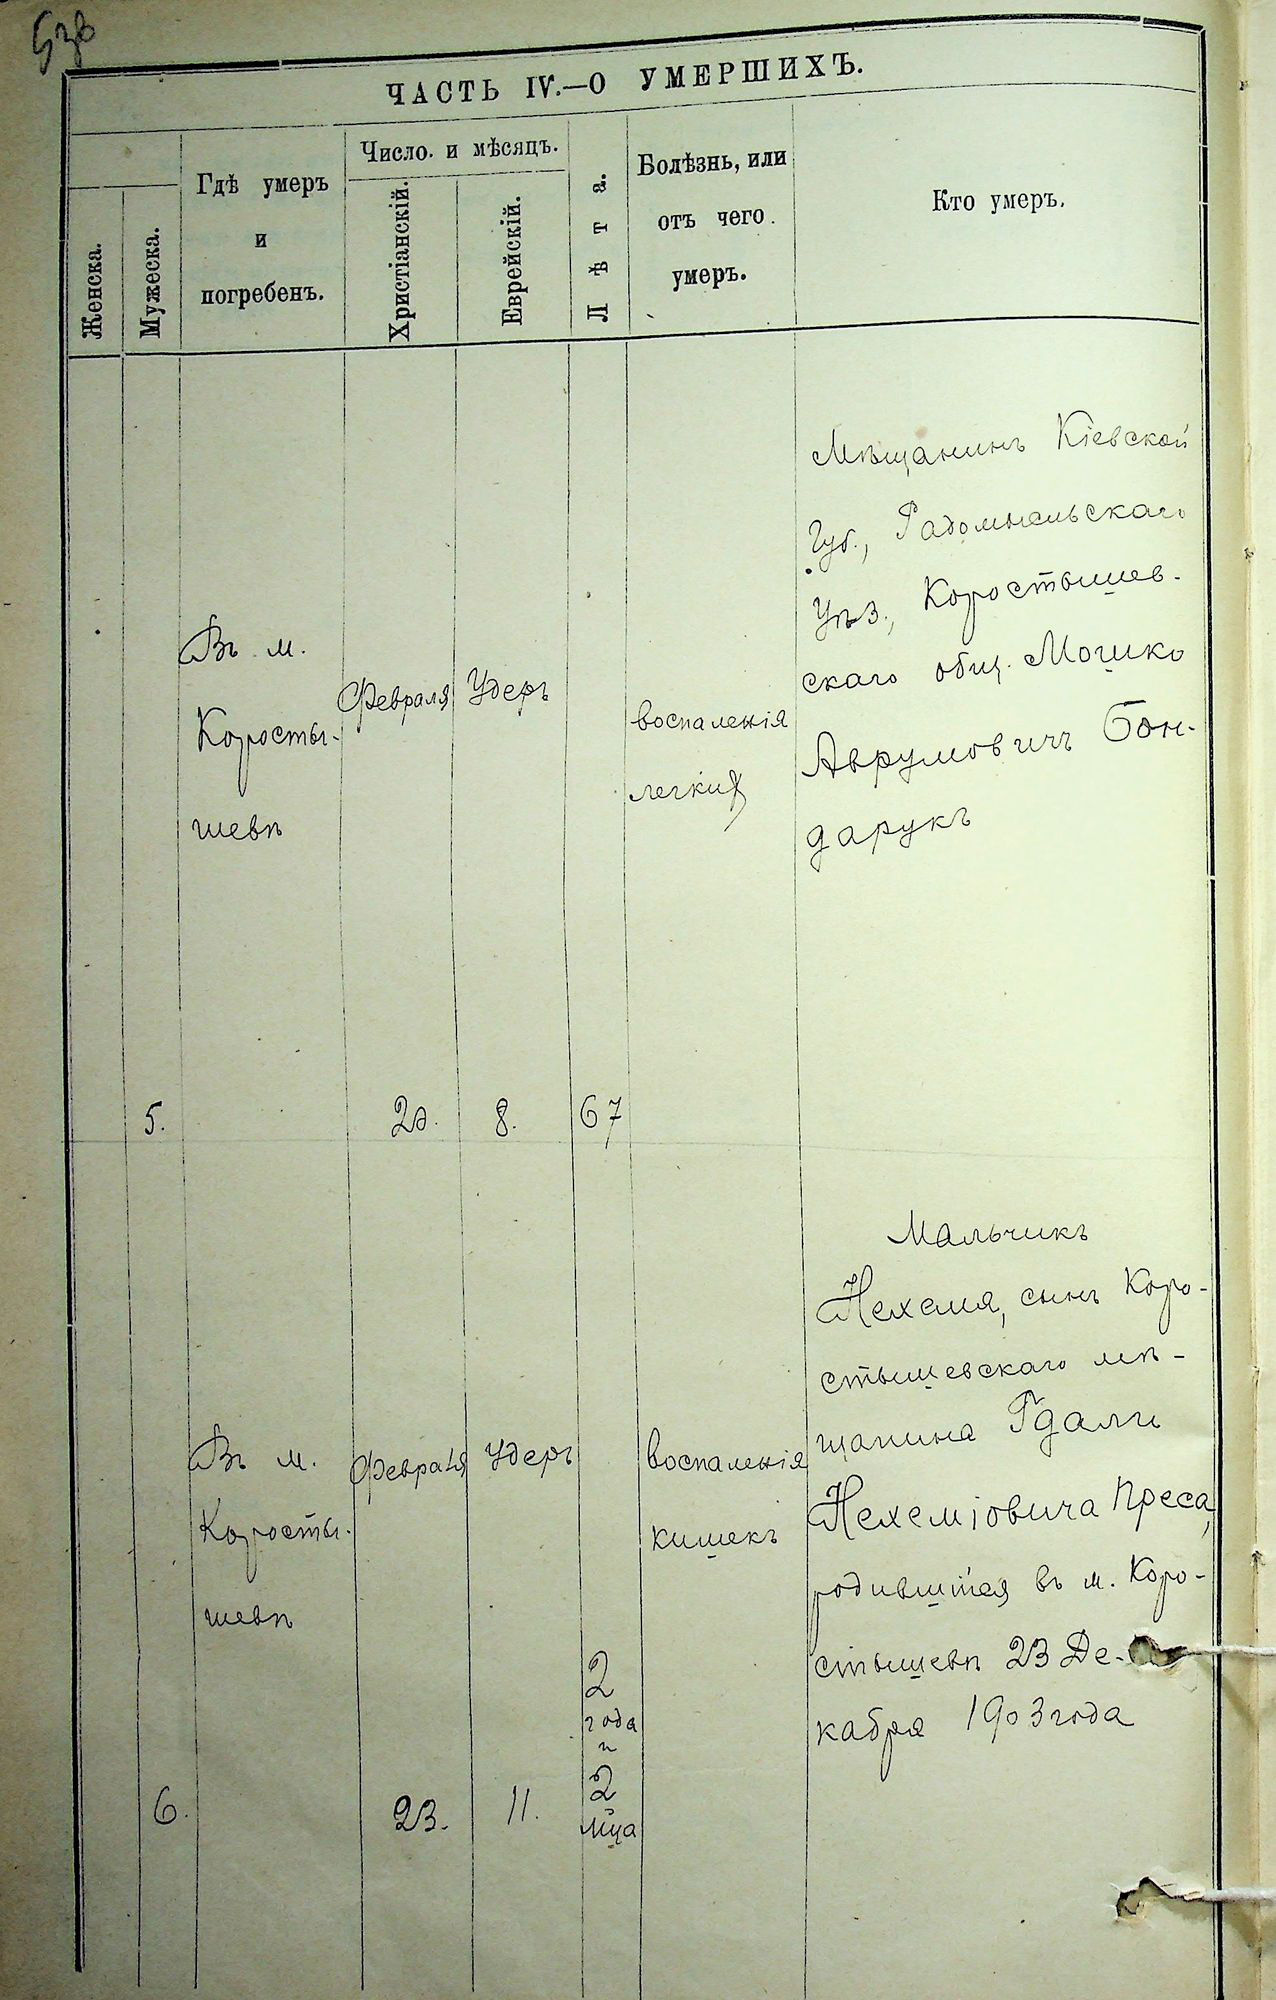 ЧАСТЬ IV.—О УМЕРШИХЪ.
Женска.
Мужеска.
Гдѣ умеръ
и
погребенъ.
Число и мѣсяцъ.
Христіанскій.
Еврейскій.
Лѣта.
Болѣзнь, или
отъ чего
умеръ.
Кто умеръ.
5.
Въ м.
Коросты-
шевѣ
Февраля
20.
Удеръ
8.
67
воспаленія
легкихъ
Мѣщанинъ Кіевской
Губ., Радомысльскаго
Уѣз., Коростышев-
скаго общ. Мошко
Аврумовичъ Бон-
дарукъ
6.
Въ м.
Коросты-
шевѣ
Февраля
23.
Удеръ
11.
2
года
и
2
мца
воспаленія
кишекъ
Мальчикъ
Нехемія, сынъ Коро-
стышевскаго мѣ-
щанина Гдали
Нехеміовича Преса,
родившійся въ м. Коро-
стышевѣ 23 Де-
кабря 1903 года